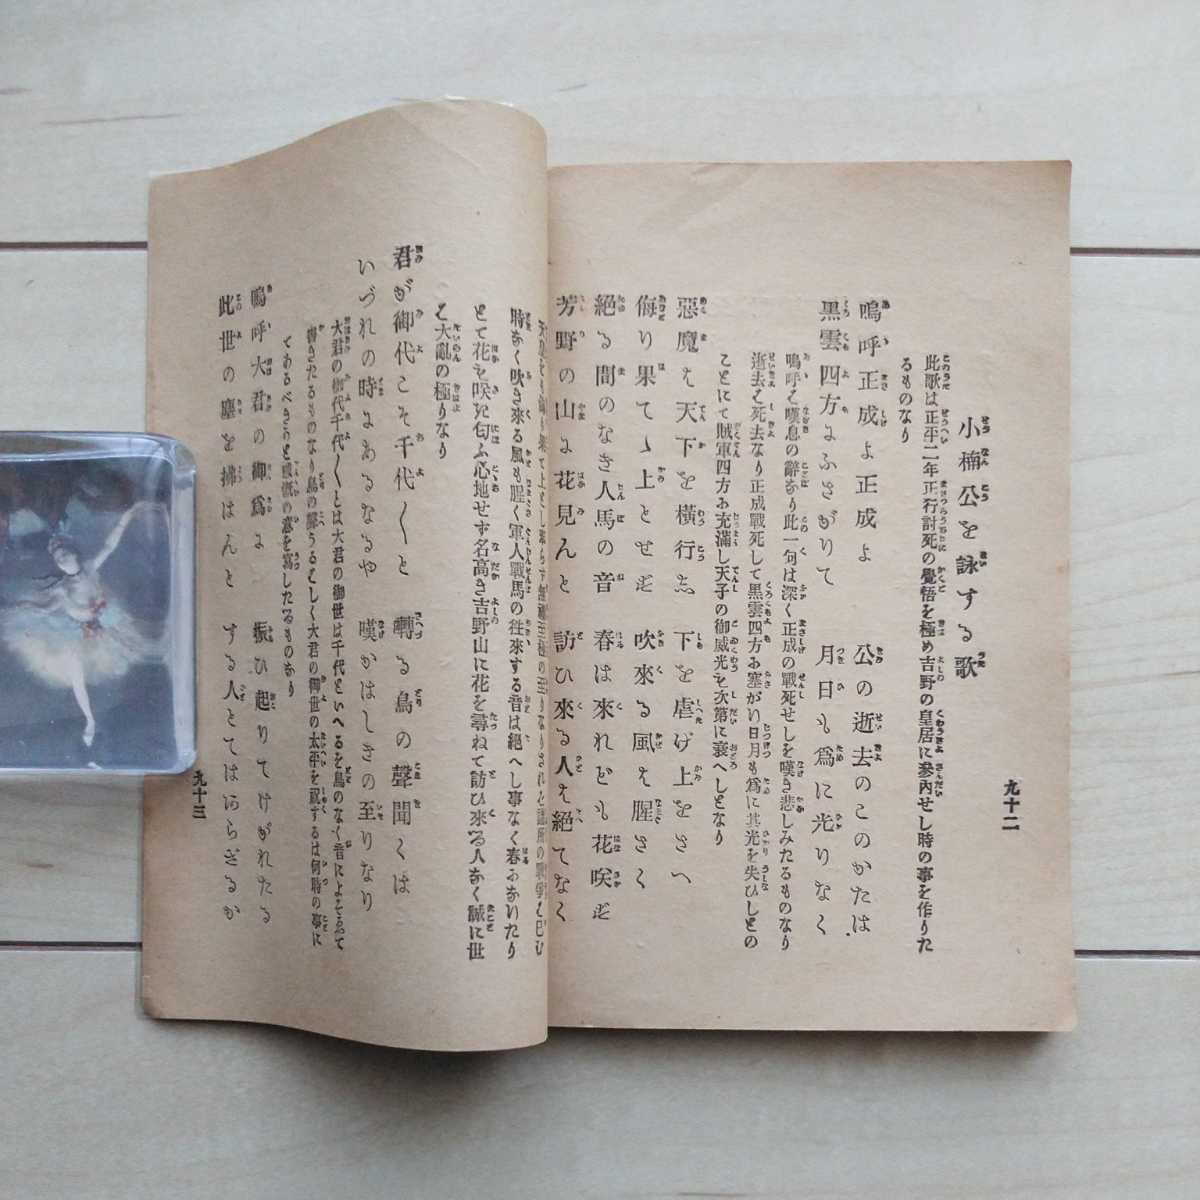 九十二
小楠公を詠する歌
此歌は正平二年正行討死の覺悟を極め吉野の皇居に參內せし時の事を作りた
るものなり
嗚呼正成よ正成よ　公の逝去のこのかたは
黒雲四方にふさがりて　月日も爲に光りなく
嗚呼と嘆息の辭なり此一句は深く正成の戰死せしを嘆き悲しみたるものなり
逝去と死去なり正成戰死して黒雲四方に塞がり日月も爲に其光を失ひしとの
ことにて賊軍四方に充滿し天子の御威光を次第に衰へしとなり
惡魔は天下を橫行し　下を虐げ上をさへ
侮り果てゝ上とせず　吹來る風は腥さく
絕る間のなき人馬の音　春は來れども花咲ず
芳野の山に花見んと　訪ひ來る人は絕てなく
時なく吹き來る風も腥く軍人戰馬の往來する音は絕へし事なく春になりたり
とて花を咲き匂ふ心地せず名高き吉野山に花を尋ねて訪ひ來る人なく誠に世
と大亂の極りなり
君が御代こそ千代〱と　囀る鳥の聲聞くは
いづれの時にあるなるや　嘆かはしきの至りなり
大君の御代千代〱とは大君の御世は千代といへるを鳥のなく音によそへて
書きたるものなり鳥の囀うるはしく大君の御世の太平を祝するは何時の事に
てあるべきかと慨の意を寫したるものなり
嗚呼大君の御爲に　振ひ起りてけがれたる
此世の塵を拂はんと　する人とてはあらざるか
九十三